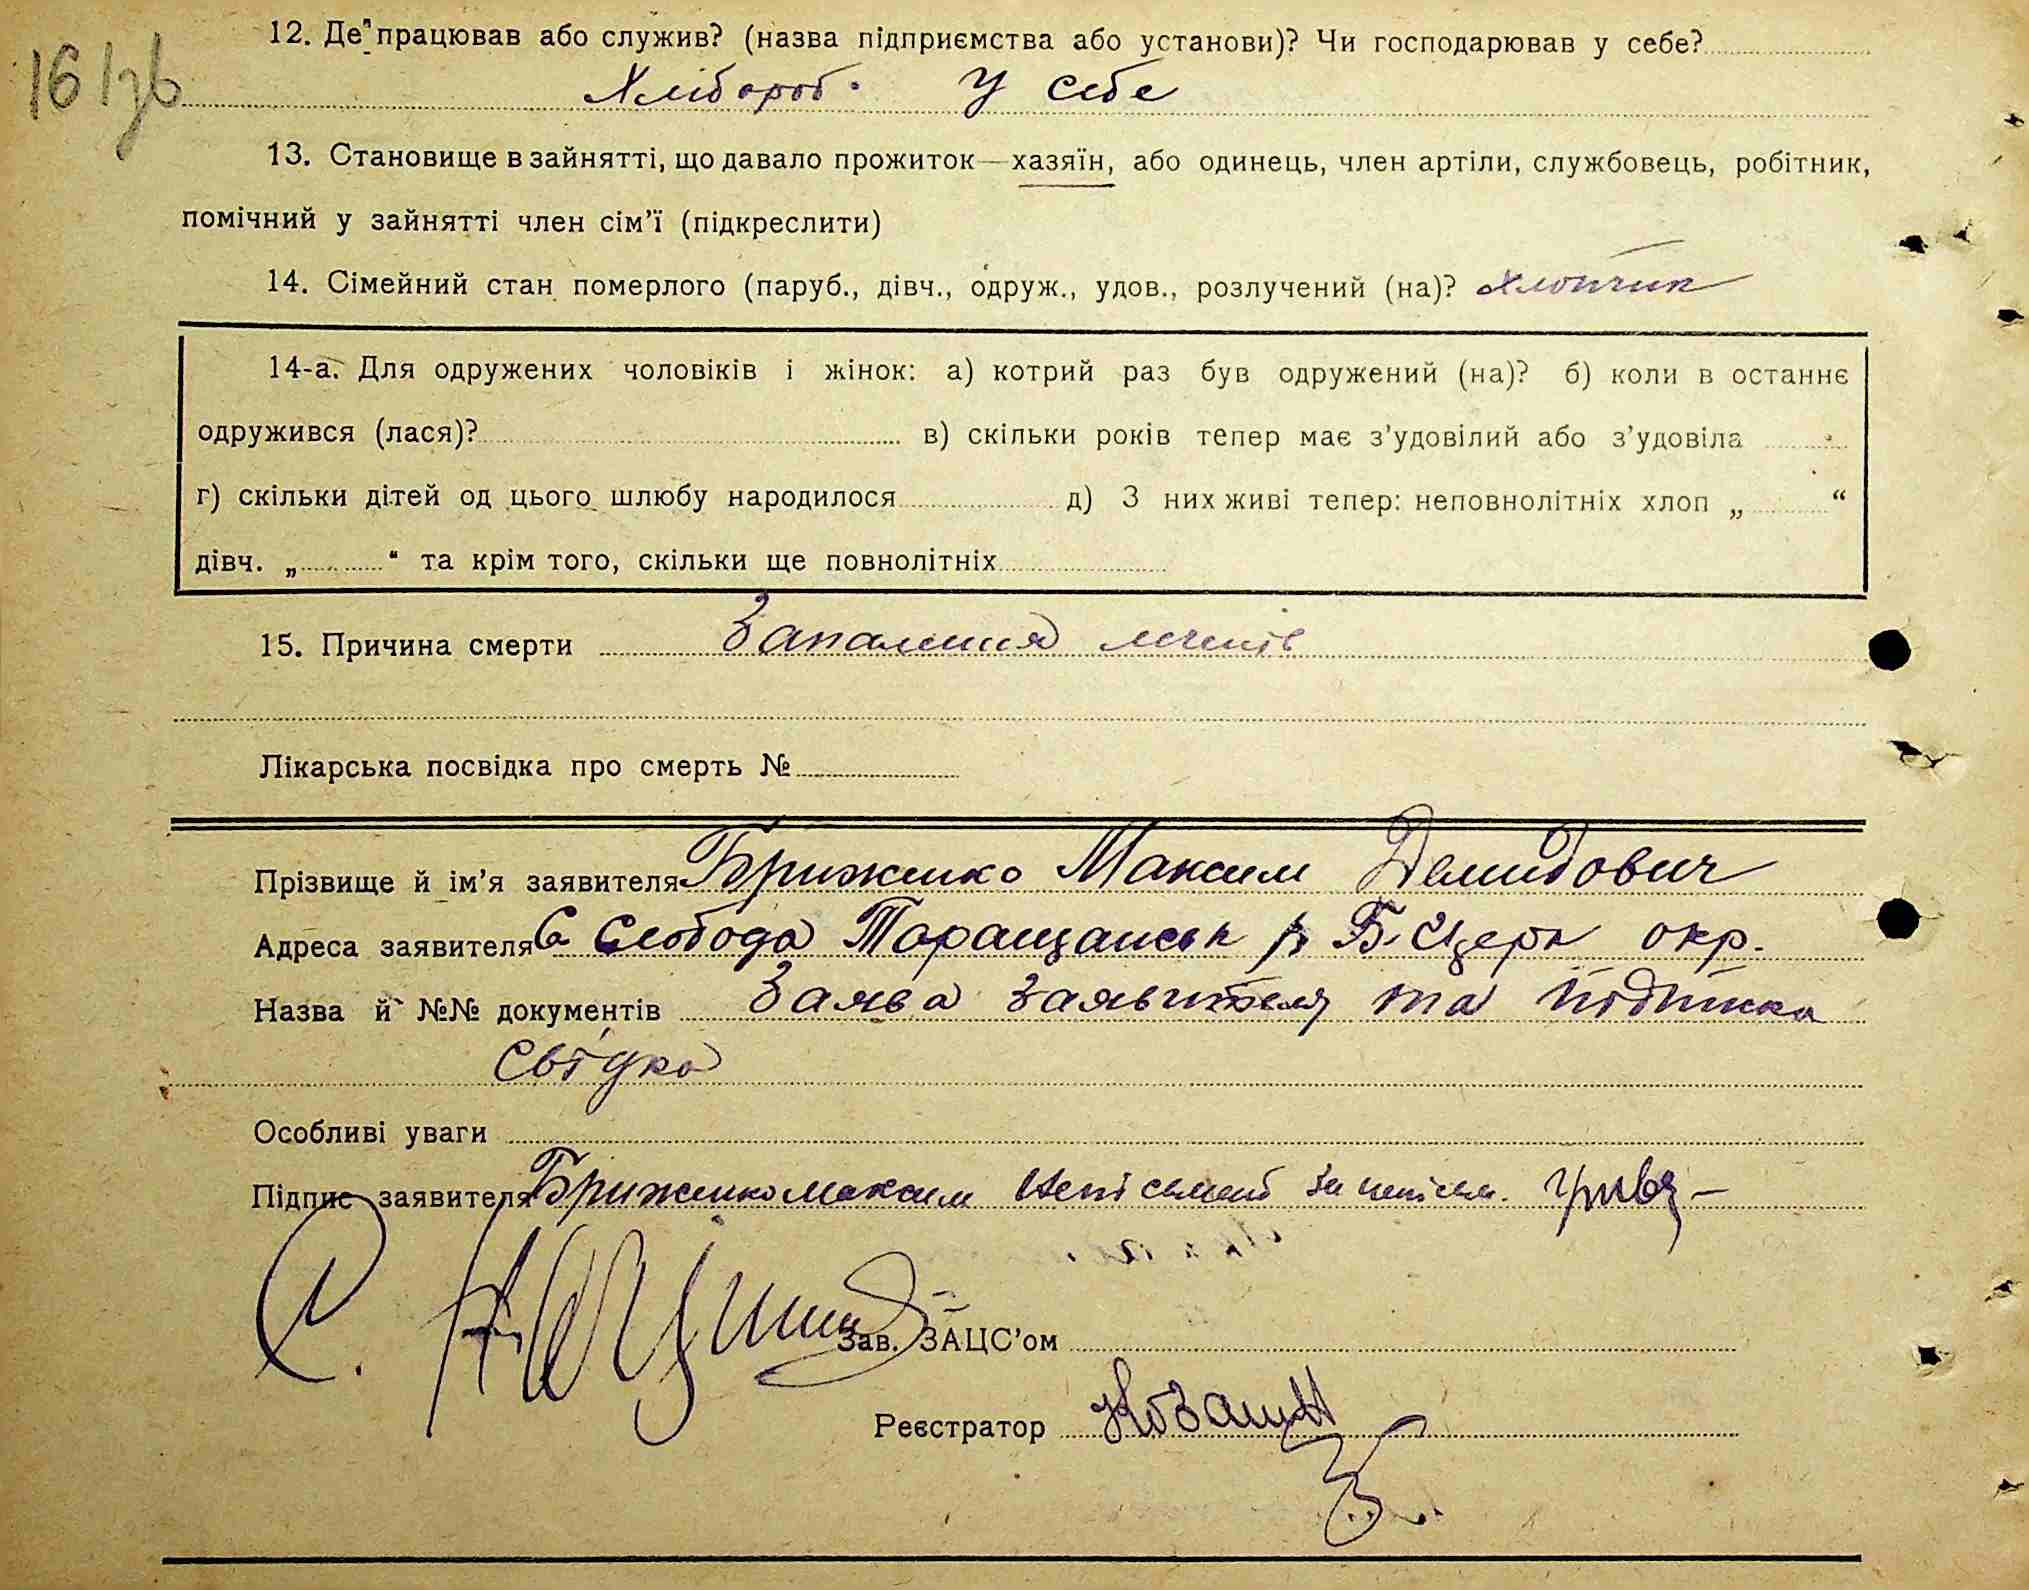 16 зв
12. Де працював або служив? (назва підприємства або установи)? Чи господарював у себе?
Хлібороб. У себе
13. Становище в зайнятті, що давало прожиток—хазяїн, або одинець, член артіли, службовець, робітник,
помічний у зайнятті член сім'ї (підкреслити)
14. Сімейний стан померлого (паруб., дівч., одруж., удов., розлучений (на)? хлопчик
14-а. Для одружених чоловіків і жінок: а) котрий раз був одружений (на)? б) коли в останнє
одружився (лася)? в) скільки років тепер має з'удовілий або з'удовіла
г) скільки дітей од цього шлюбу народилося д) З них живі тепер: неповнолітніх хлоп „ “
дівч. „ “ та крім того, скільки ще повнолітніх
15. Причина смерти Запалення легенів
Лікарська посвідка про смерть №
Прізвище й ім'я заявителя Бриженко Максим Демидович
Адреса заявителя с Слобода Таращанськ р Б. Церк окр.
Назва й №№ документів Заява заявителя та підписка
свідка
Особливі уваги
Підпис заявителя Бриженко Максим неписьмен за неписьм.
Зав. ЗАЦС'ом
Реєстратор